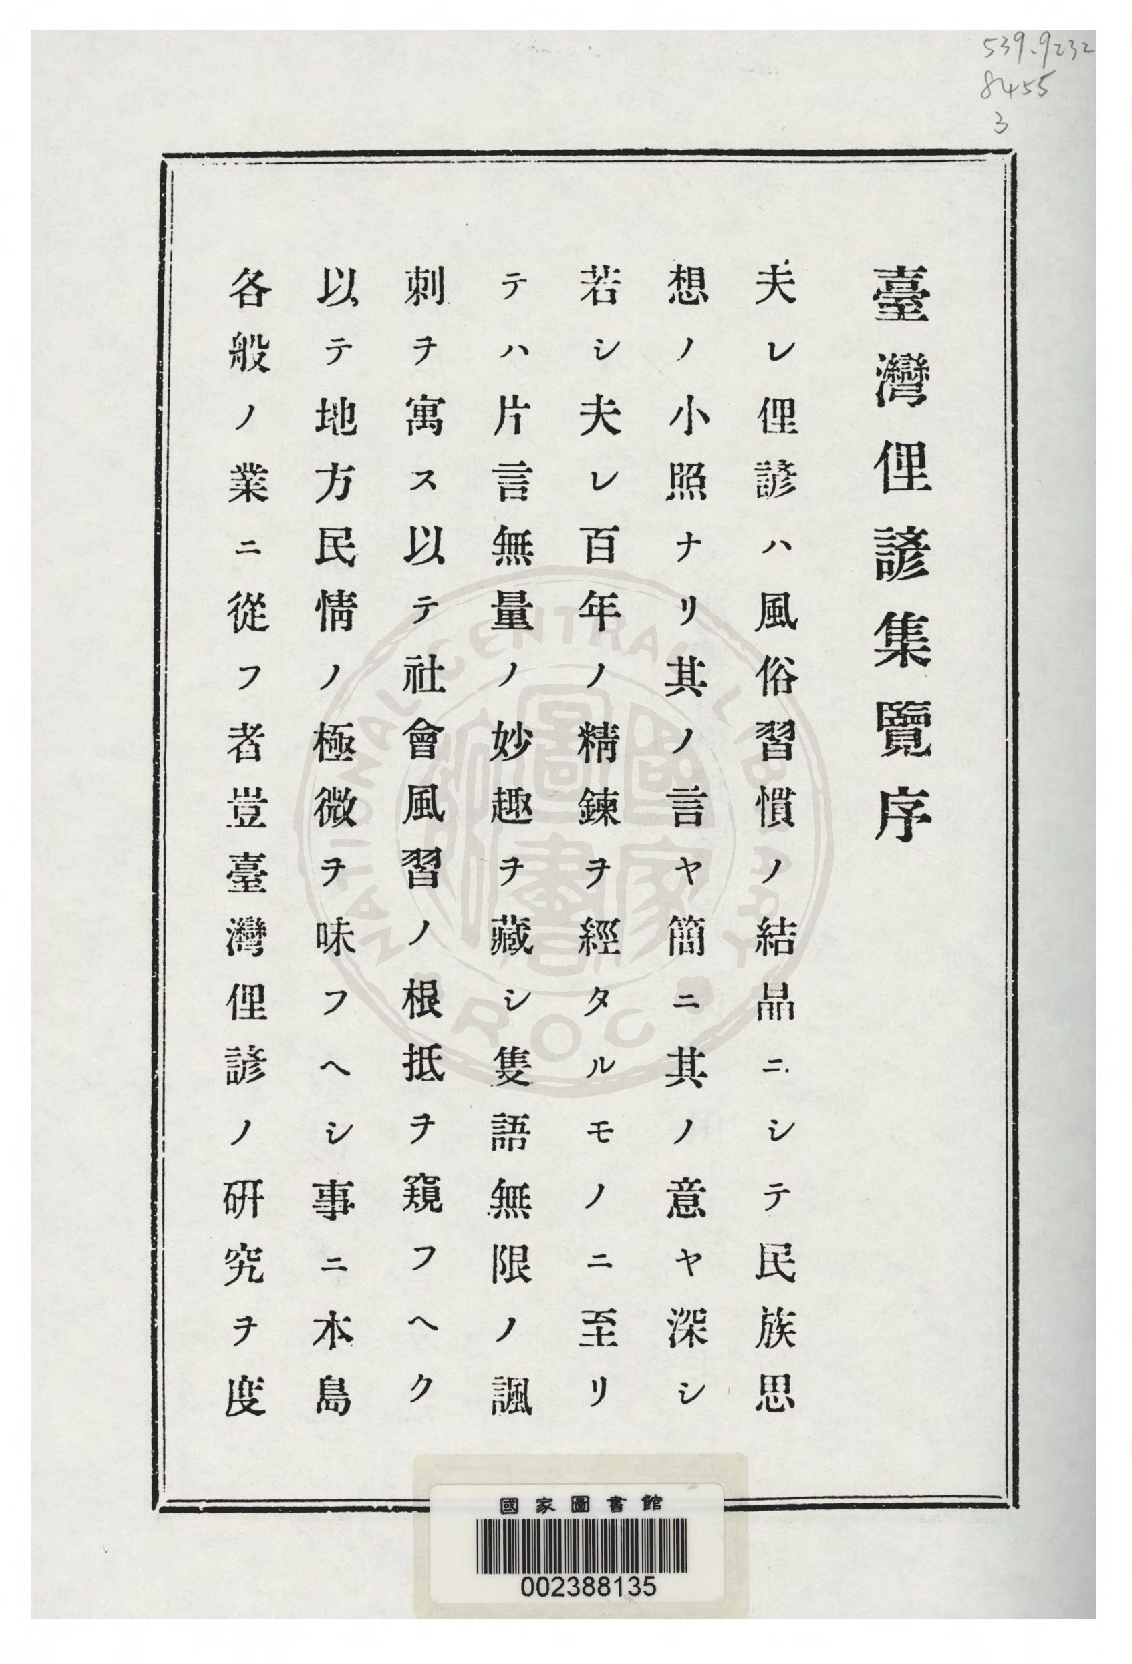 539.9232
8455
3
臺灣俚諺集覽序
夫レ俚諺ハ風俗習慣ノ結晶ニシテ民族思
想ノ小照ナリ其ノ言ヤ簡ニ其ノ意ヤ深シ
若シ夫レ百年ノ精鍊ヲ經タルモノニ至リ
テハ片言無量ノ妙趣ヲ藏シ隻語無限ノ諷
刺ヲ寓ス以テ社會風習ノ根抵ヲ窺フヘク
以テ地方民情ノ極微ヲ味フヘシ事ニ本島
各般ノ業ニ從フ者豈臺灣俚諺ノ研究ヲ度
NATIONAL CENTRAL LIBRARY
R.O.C
國家圖書館
國家圖書館
002388135